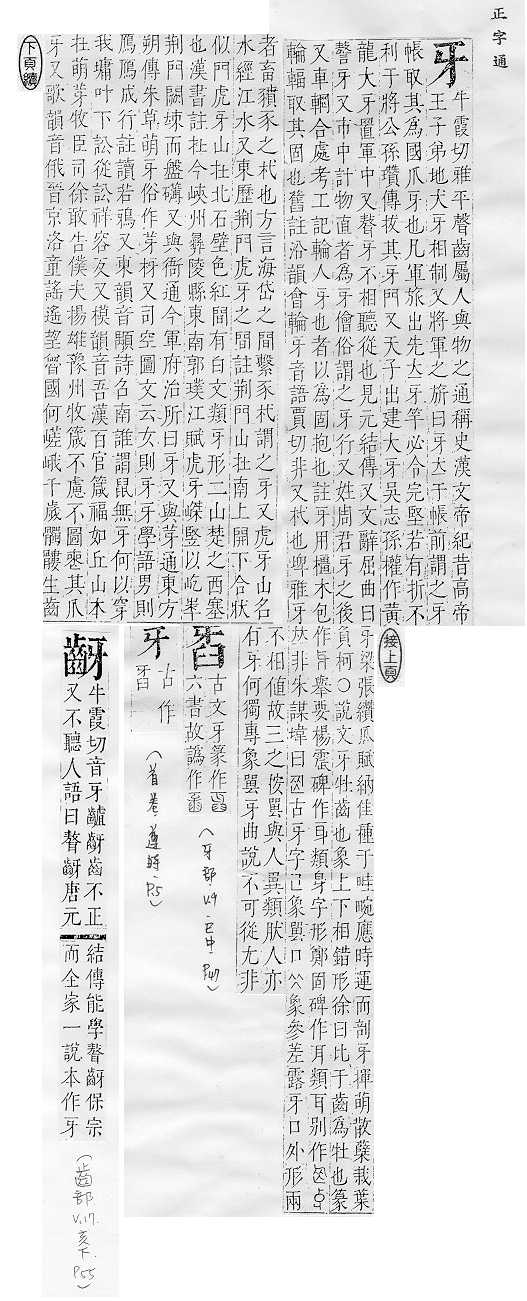 正字通
牙
牛霞切雅平聲齒屬人與物之通稱史漢文帝紀昔高帝
王子弟地犬牙相制又將軍之旂曰牙立于帳前謂之牙
帳取其為國爪牙也凡軍旅出先大牙竿必令完堅若有折不
利于將公孫瓚傳拔其牙門又天子出建大牙吳志孫權作黃
龍大牙置軍中又聱牙不相聽從也見元結傳又文辭屈曲曰
聱牙又市中計物直者為牙儈俗謂之牙行又姓周君牙之後
又車輞合處考工記輪人牙也者以為固抱也註牙用橿木包
輪輻取其固也舊註沿韻會輪牙音語賈切非又杙也埤雅牙
者畜豶豕之杙也方言海岱之間繫豕杙謂之牙又虎牙山名
水經江水又東歷荊門虎牙之間註荊門山在南上開下合狀
似門虎牙山在北石壁色紅間有白文類牙形二山楚之西塞
也漢書註在今峽州夷陵縣東南郭璞江賦虎牙嵥豎以屹崒
荊門闕竦而盤礴又與衙通今軍府治所曰牙又與芽通東方
朔傳朱草萌牙俗作芽枒又司空圖文云女則牙牙學語男則
鴈鴈成行註讀若鴉又東韻音顒詩召南誰謂鼠無牙何以穿
我墉叶下訟從訟祥容反又模韻音吾漢百官箴福如丘山本
在萌芽牧臣司徐敢告僕夫揚雄豫州牧箴不慮不圖棄其爪
牙又歌韻音俄晉京洛童謠遙望魯國何嵯峨千歲髑髏生齒
下頁續
接上頁
牙梁張纘瓜賦納佳種于哇畹應時運而剖牙揮萌散蘖栽葉
負柯〇說文牙牡齒也象上下相錯形徐曰比于齒為牡也篆
作舉要楊震碑作類身字形鄭固碑作耳類耳別作
非朱謀㙔曰古牙字象異口象參差露牙口外形兩
不相值故三之異與人異類肰人亦
有牙何獨專象異牙曲說不可從尤非
𤘈
古文牙篆作
六書故譌作
(牙部 V.9. 巳中. P47)
牙
古作
𤘈
(首卷.遵時.P5)
齖
牛霞切音牙齇齖齒不正
又不聽人語曰聱齖唐元
結傳能學聱齖保宗
而全家一說本作牙
(齒部 V.17. 亥下. P55)